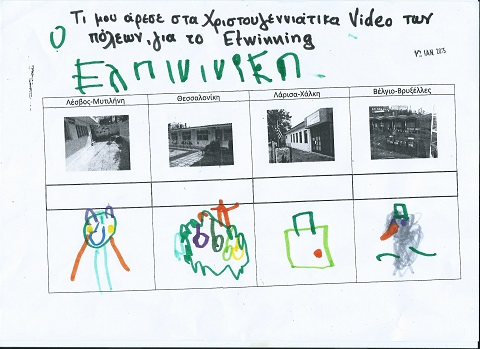 Τι μου άρεσε στα Χριστουγεννιάτικα Video των
πόλεων, για το Etwinning
Λέσβος-Μυτιλήνη Θεσσαλονίκη Λάρισα-Χάλκη Βέλγιο-Βρυξέλλες